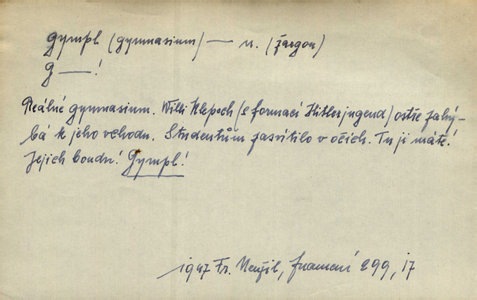 gympl (gymnasium) — n. (žargon)
G——!
Reálné gymnasium. Willi Klepoch (s formací Hitlerjugend) ostře zahý-
bá k jeho vchodu. Studentům zasvítilo v očích. Tu ji máte!
Jejich boudu! Gympl!
1947 Fr. Neužil, Znamení 299, 17